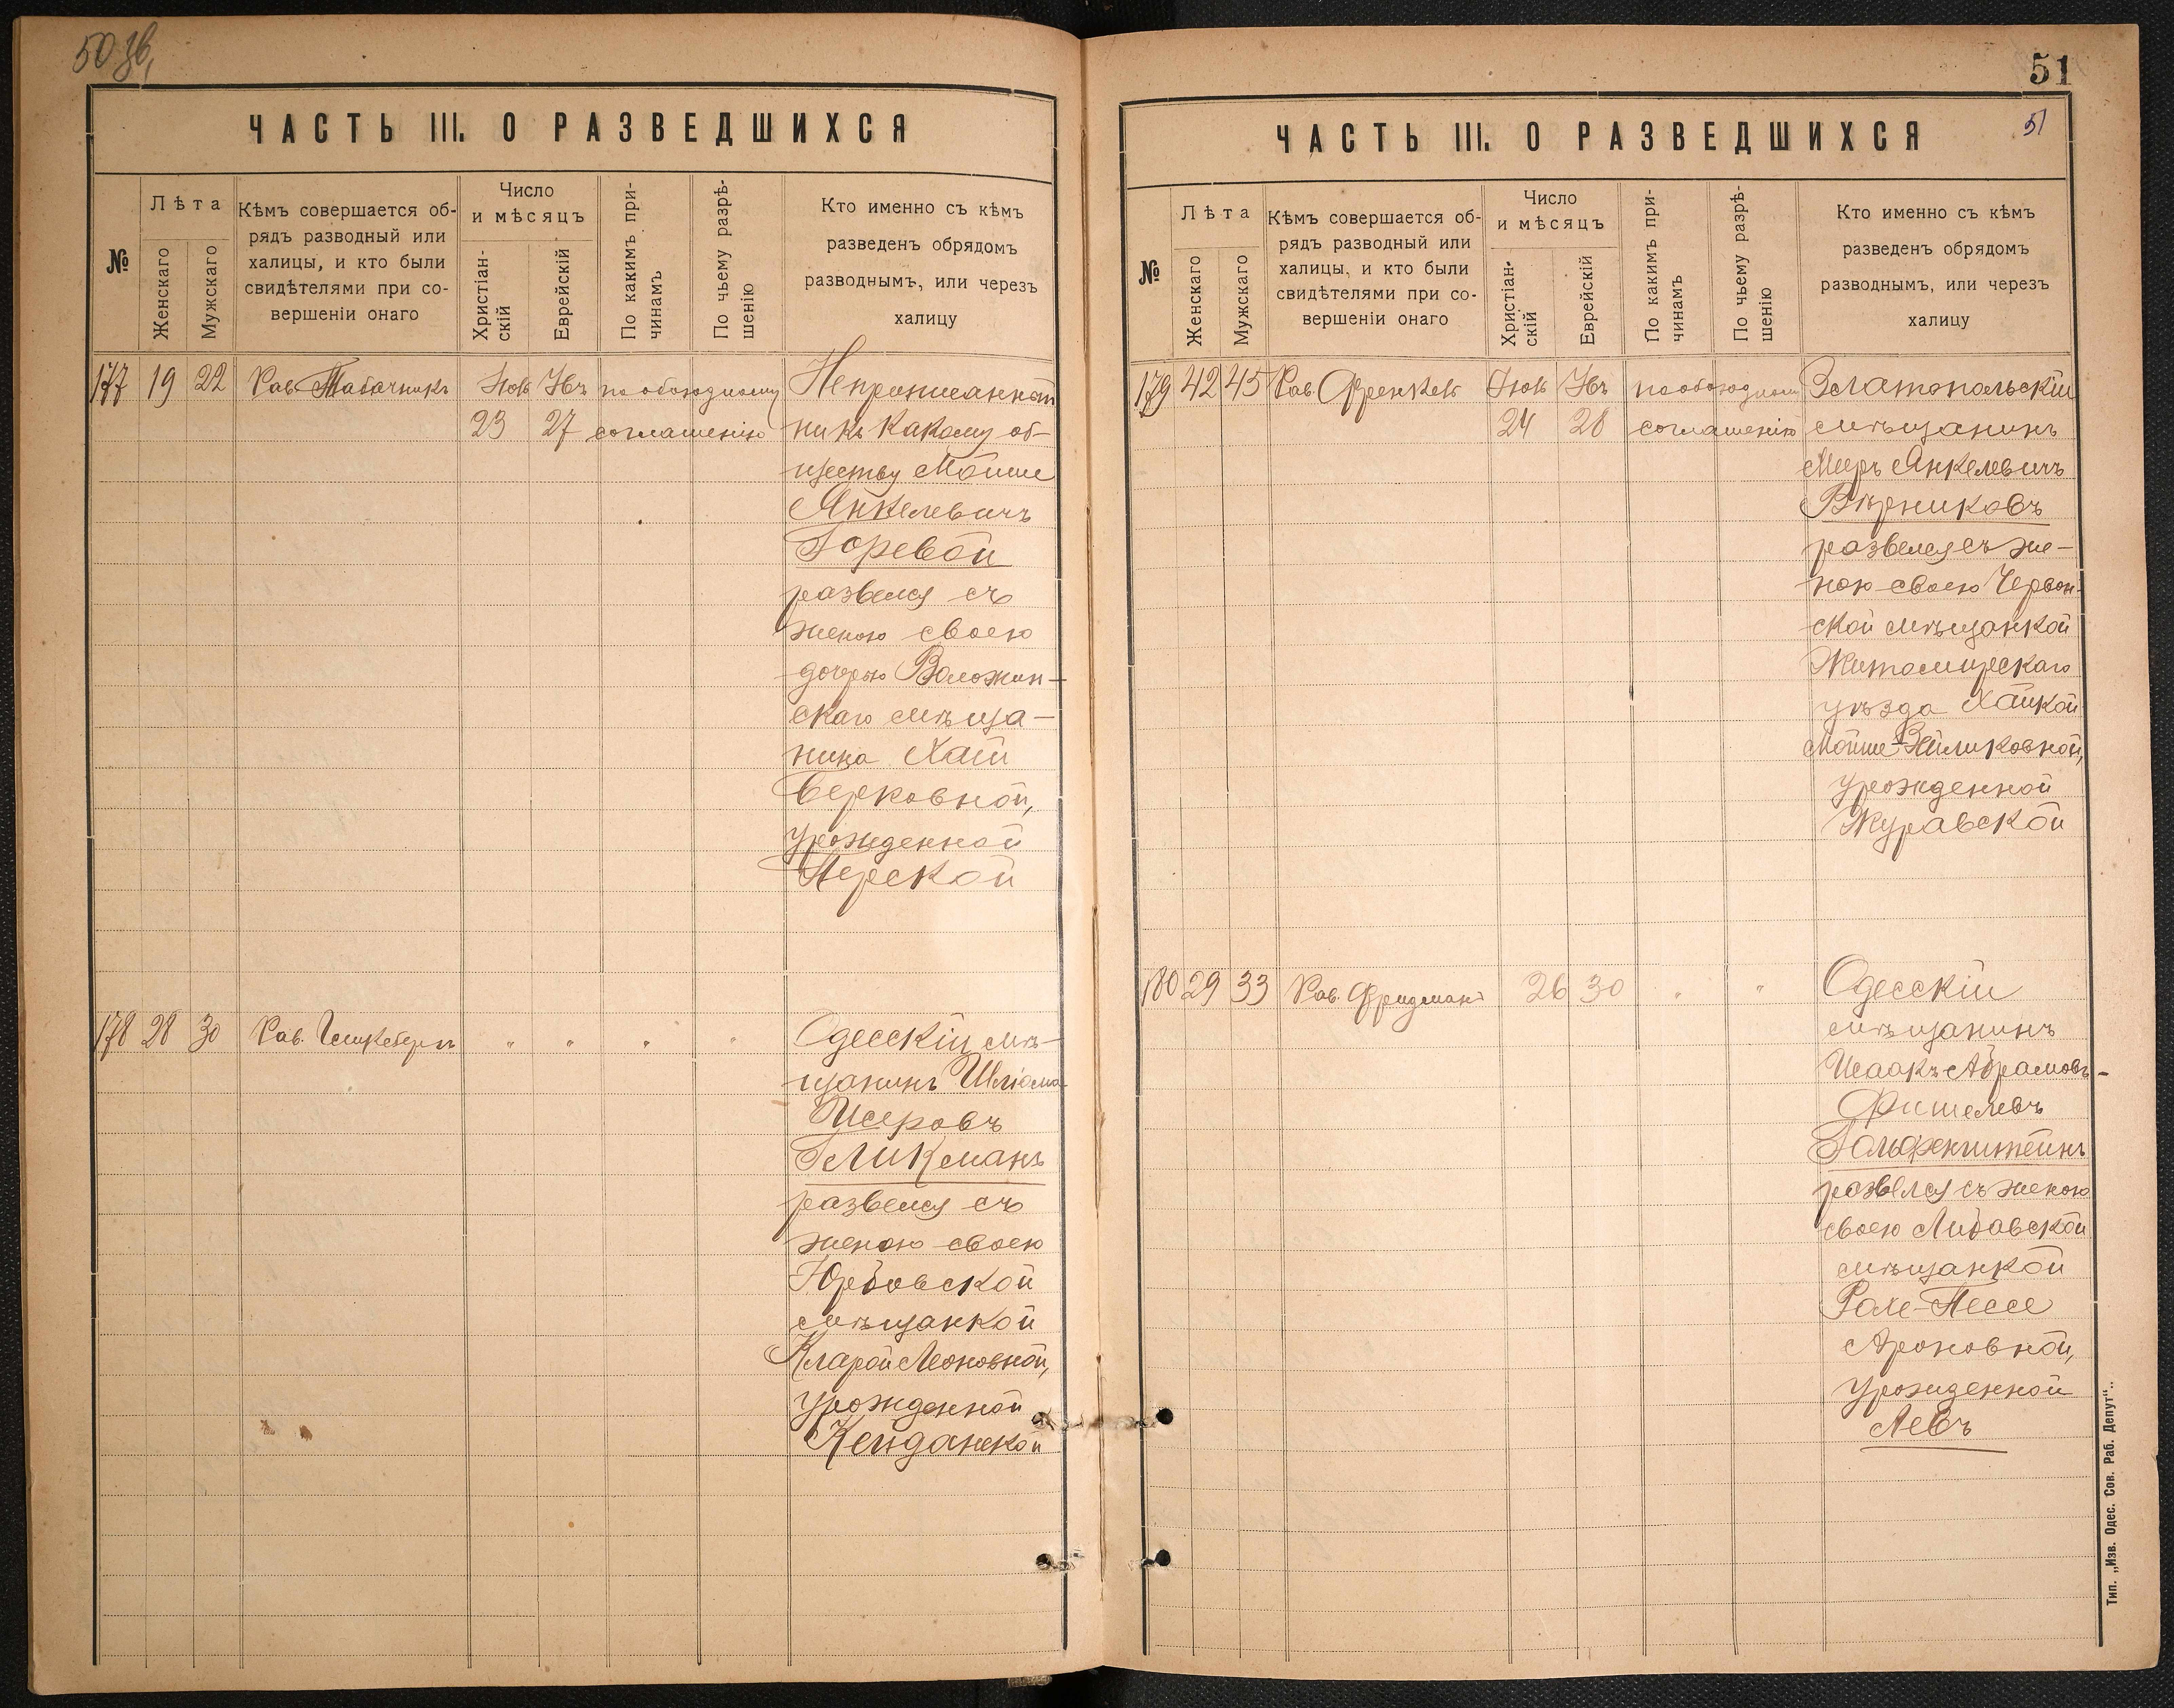 50 зв,
ЧАСТЬ III. О РАЗВЕДШИХСЯ
№
Лѣта
Женскаго
Мужскаго
Кѣмъ совершается об-
рядъ разводный или
халицы, и кто были
свидѣтелями при со-
вершеніи онаго
Число
и мѣсяцъ
Христіан-
скій
Еврейскій
По какимъ при-
чинамъ
По чьему разрѣ-
шенію
Кто именно съ кѣмъ
разведенъ обрядомъ
разводнымъ, или черезъ
халицу
177 19 22 Рав. Табачникъ
23 27
по обоюдному
соглашенію
Неприписанный
ни къ какому об-
ществу Мойше
Янкелевичъ
Горевой
развелся съ
женою своею
дочерью Воложин-
скаго мѣща-
нина Хаей
Берковной,
урожденной
Перской
178 28 30 Рав. „ „ „ „
Одесскій мѣ-
щанинъ Шліома
Исеровъ
Гликманъ
развелся съ
женою своею
Юрбовской
мѣщанкой
Кларой Леоновной,
урожденной
Кейданской
51
51
ЧАСТЬ III. О РАЗВЕДШИХСЯ
№
Лѣта
Женскаго
Мужскаго
Кѣмъ совершается об-
рядъ разводный или
халицы, и кто были
свидѣтелями при со-
вершеніи онаго
Число
и мѣсяцъ
Христіан-
скій
Еврейскій
По какимъ при-
чинамъ
По чьему разрѣ-
шенію
Кто именно съ кѣмъ
разведенъ обрядомъ
разводнымъ, или черезъ
халицу
179 42 45 Рав. Френкель
24 28
по обоюдному
соглашенію
Златопольскій
мѣщанинъ
Мееръ Янкелевичъ
Вѣрниковъ
развелся съ же-
ною своею Червон-
ской мѣщанкой
Житомирскаго
уѣзда Хайкой
Мойше-Зейликовной,
урожденной
Журавской
180 29 33 Рав. Фридманъ 26 30 „ „
Одесскій
мѣщанинъ
Исаакъ Абрамовъ-
Фишелевъ
Гольфенштейнъ
развелся съ женою
своею Либавской
мѣщанкой
Рахе-Пессе
Ароновной,
урожденной
Левъ
Тип. „Изв. Одес. Сов. Раб. Депут“.